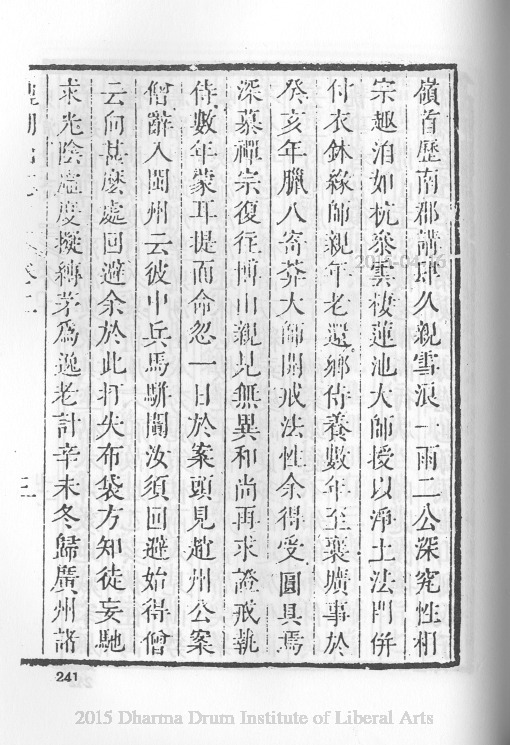 嶺首歷南郡講肆久親雪浪一雨二公深究性相
宗趣洎如杭參雲棲蓮池大師授以淨土法門併
付衣鉢緣師親年老還鄉侍養數年至襄壙事於
癸亥年臘八寄莽大師開戒法性余得受圓具焉
深慕禪宗復往博山親見無異和尚再求證戒執
侍數年蒙耳提而命忽一日於案頭見趙州公案
僧辭入閩州云彼中兵馬駢闐汝須回避始得僧
云向甚麼處回避余於此打失布袋方知徒妄馳
求光陰虛度擬縛茅爲逸老計辛未冬歸廣州諸
二
241
2015-04-16
2015 Dharma Drum Institute of Liberal Arts